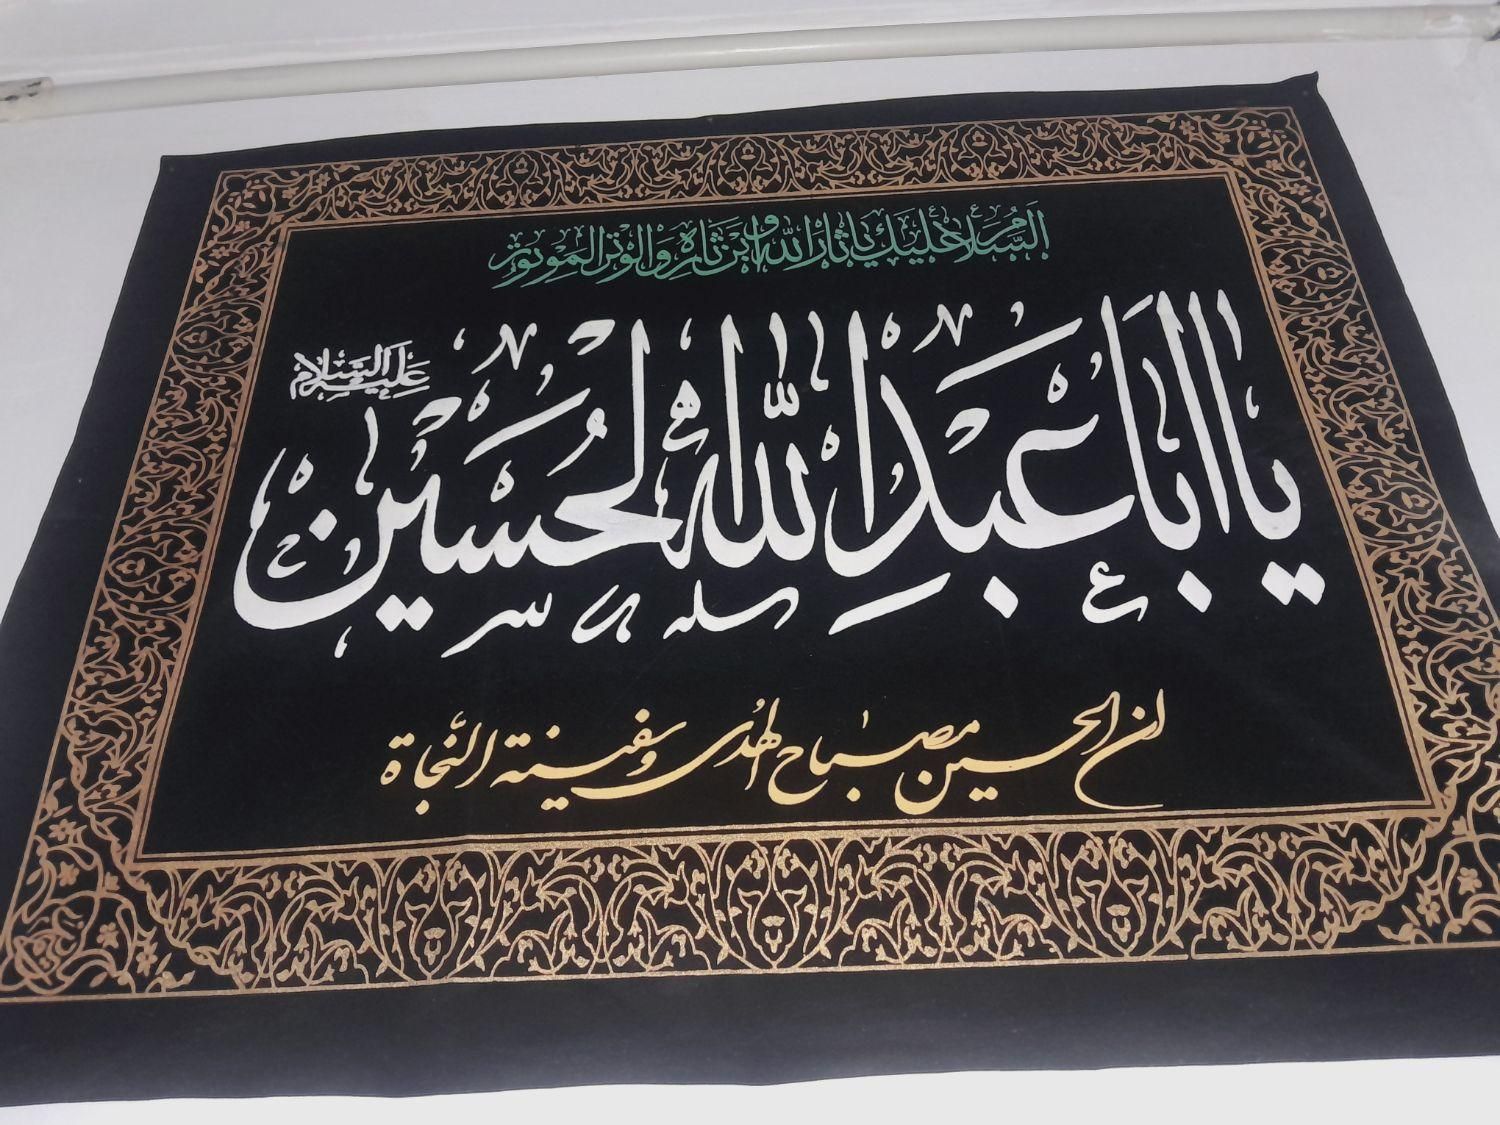 السلام عليك يا ثار الله وابن ثاره والوتر الموتور
يا ابا عبد الله الحسين
عليه السلام
ان الحسين مصباح الهدى وسفينة النجاة